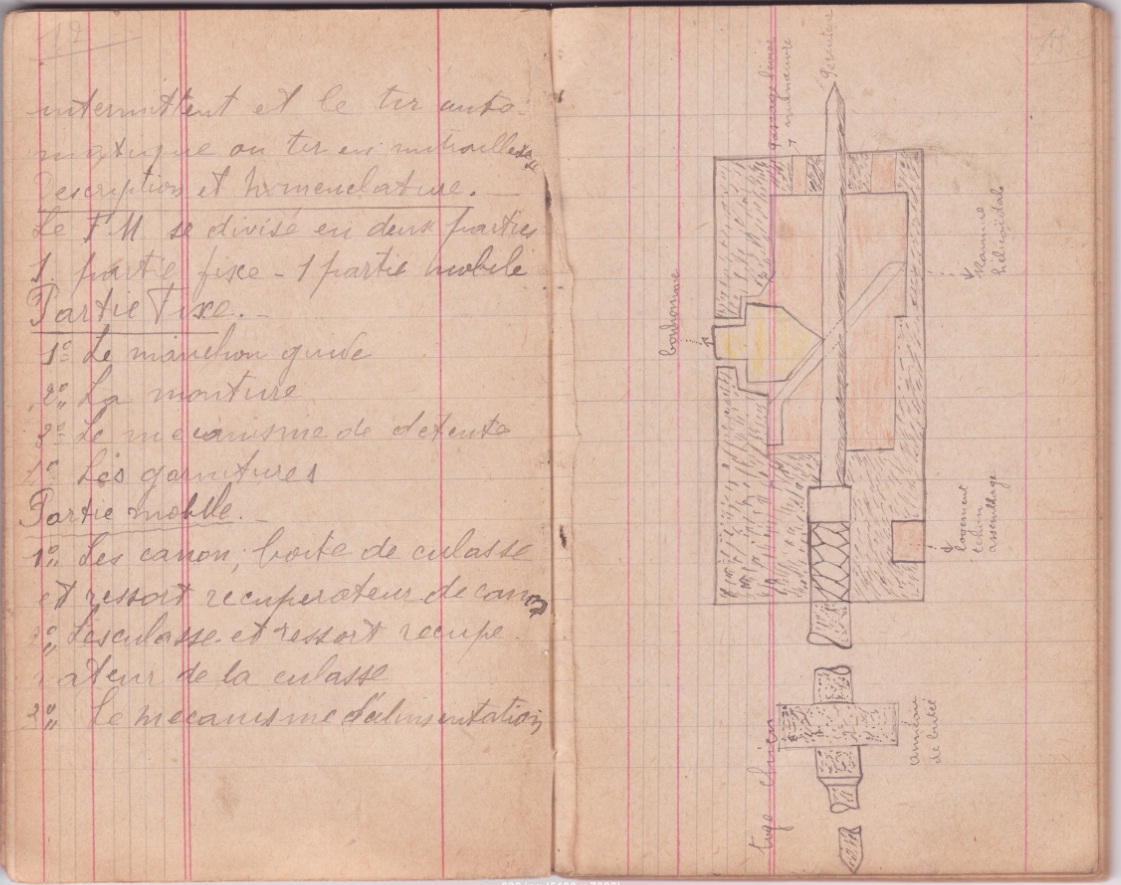 12
intermittent et le tir auto
matique ou tir en mitrailleuse
Description et Nomenclature. —
Le FM se divise en deux parties
1 partie fixe - 1 partie mobile
Partie Fixe. -
1° Le manchon guide
2° La monture
3° Le mécanisme de detente
4° Les garnitures
Partie mobile. -
1° Les canon, boite de culasse
et ressort recuperateur de canon
2° Les culasse et ressort recupe
rateur de la culasse
3° Le mecanisme d'alimentation
passage levier
manœuvre
percuteur
bonhomme
Rainure
hélicoidale
logement
tenon
assemblage
anneau
de butée
tige chien